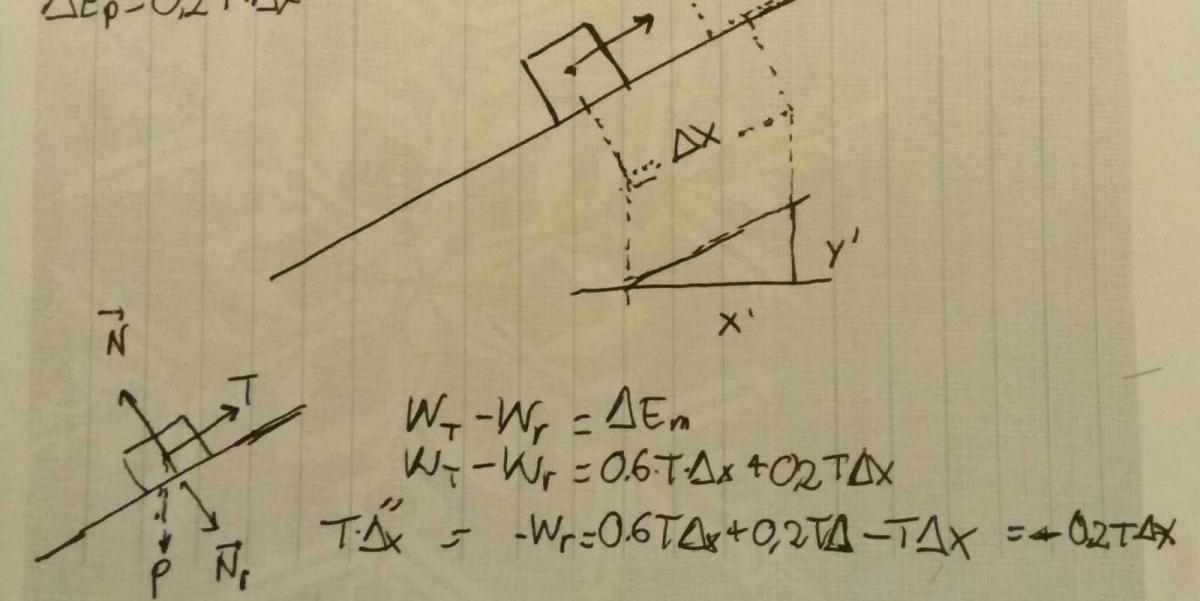 ΔEp=0,2T·Δx
Δx
y'
x'
N⃗
T
P
N⃗r
W_T - W_r = ΔEm
W_T - W_r = 0.6·T·Δx + 0,2TΔx
T·Δx" = -W_r = 0.6TΔx + 0,2TΔ - TΔx = - 0.2TΔx